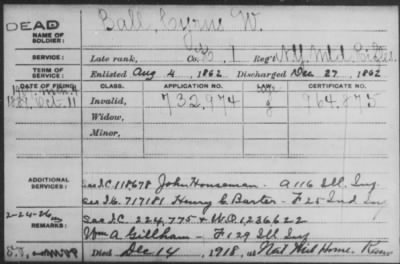 DEAD
NAME OF SOLDIER: Ball, Cyrus W.
SERVICE: Late rank, Co. 1 Reg't N.Y. Mtd.
TERM OF SERVICE: Enlisted Aug 4, 1862 Discharged Dec 27, 1862
DATE OF FILING. CLASS. APPLICATION NO. LAW. CERTIFICATE NO.
Oct. 11 Invalid, 732,974 964,875
Widow,
Minor,
ADDITIONAL SERVICES: see I.C. 118,678 John Houseman - A 116 Ill. Inf.
717181 Henry C. Baxter - F 25 Ind Inf
2-24-26 see I.C. 224,775 & W.O. 1,236,622
REMARKS: Wm A Gillham - F 129 Ill Inf
Died Dec 14, 1918, at Nat Mil Home,